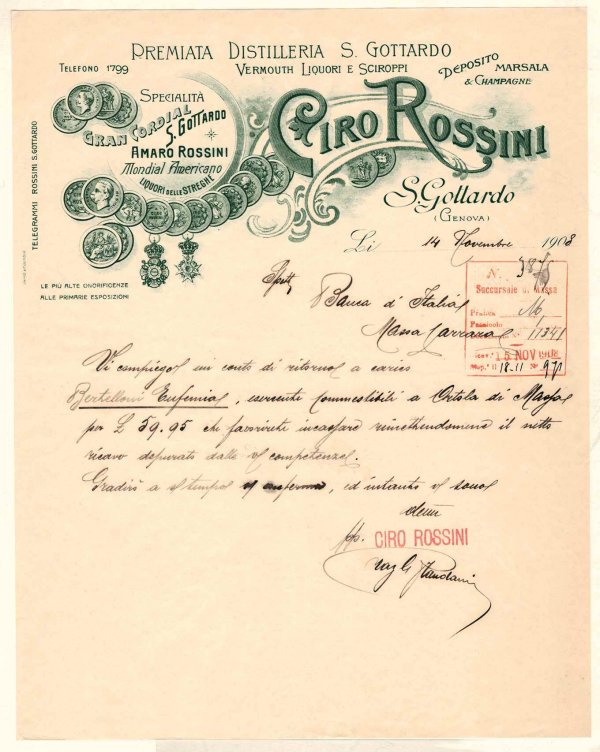 PREMIATA DISTILLERIA S. GOTTARDO
VERMOUTH LIQUORI E SCIROPPI
TELEFONO 1799
DEPOSITO MARSALA
& CHAMPAGNE
SPECIALITÀ
GRAN CORDIAL
S. GOTTARDO
AMARO ROSSINI
Mondial Americano
LIQUORI DELLE STREGHE
CIRO ROSSINI
S. Gottardo
(GENOVA)
TELEGRAMMI ROSSINI S. GOTTARDO
LE PIÙ ALTE ONORIFICENZE
ALLE PRIMARIE ESPOSIZIONI
Li 14 Novembre 1908
Spett.
Banca d'Italia
Massa Carrara
N.
Succursale di Massa
Pratica
Fascicolo
11341
15 NOV 1908
18.11 N° 971
Vi compiego un conto di ritorno a carico
Bertelloni Eufemia, esercente commestibili a Ortola di Massa
per £ 59.95 che favorirete incassare rimettendomene il netto
ricavo depurato dalle v/ competenze.
Gradirò a s/ tempo v/ conferma, ed intanto vi sono
pp. CIRO ROSSINI